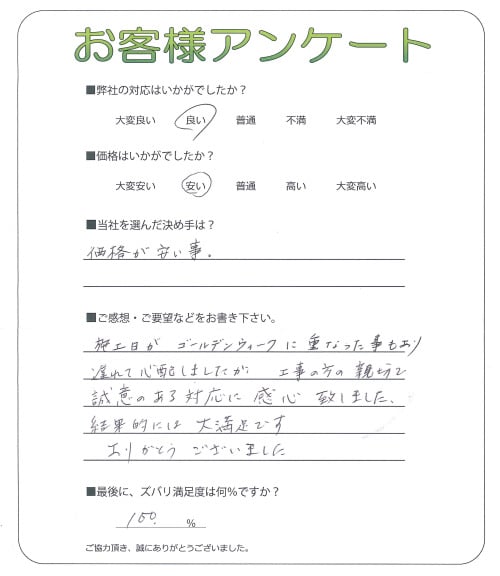 お客様アンケート
■弊社の対応はいかがでしたか？
大変良い 良い 普通 不満 大変不満
■価格はいかがでしたか？
大変安い 安い 普通 高い 大変高い
■当社を選んだ決め手は？
価格が安い事。
■ご感想・ご要望などをお書き下さい。
施工日が ゴールデンウィークに 重なった事もあり
遅れて心配しましたが 工事の方の親切で
誠意のある対応に感心致しました、
結果的には大満足です
ありがとうございました
■最後に、ズバリ満足度は何％ですか？
100. %
ご協力頂き、誠にありがとうございました。